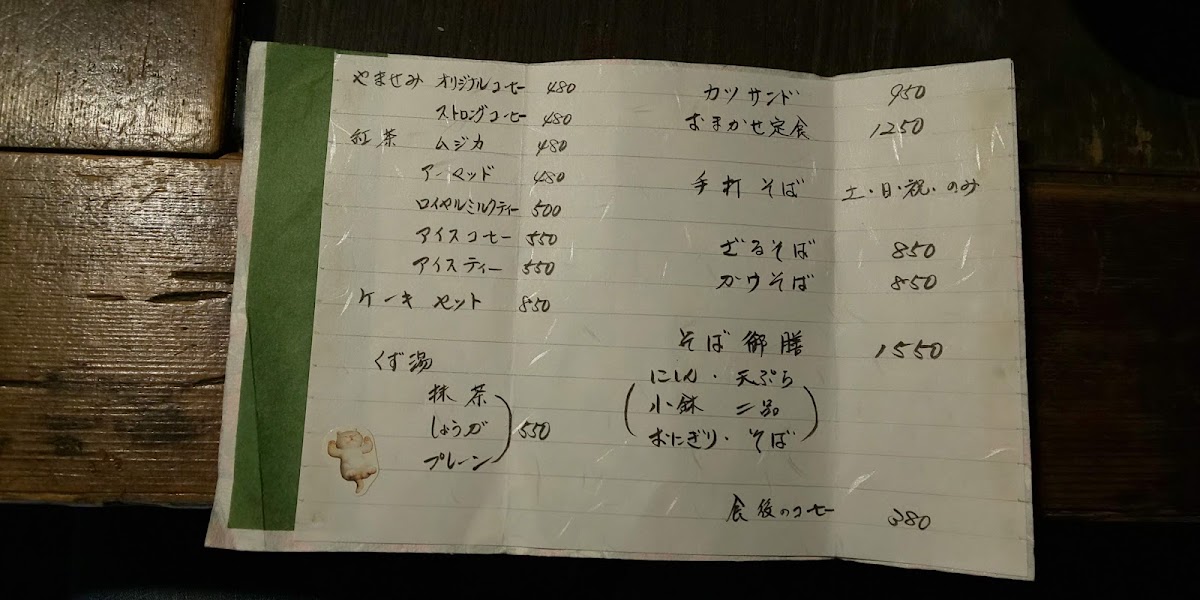 やませみ オリジナルコーヒー 480
ストロングコーヒー 480
紅茶 ムジカ 480
アーマッド 480
ロイヤルミルクティー 500
アイスコーヒー 550
アイスティー 550
ケーキセット 850
くず湯
抹茶
しょうが 550
プレーン
カツサンド 950
おまかせ定食 1250
手打そば 土・日・祝・のみ
ざるそば 850
かけそば 850
そば御膳 1550
(にしん・天ぷら
小鉢 二品
おにぎり・そば)
食後のコーヒー 380